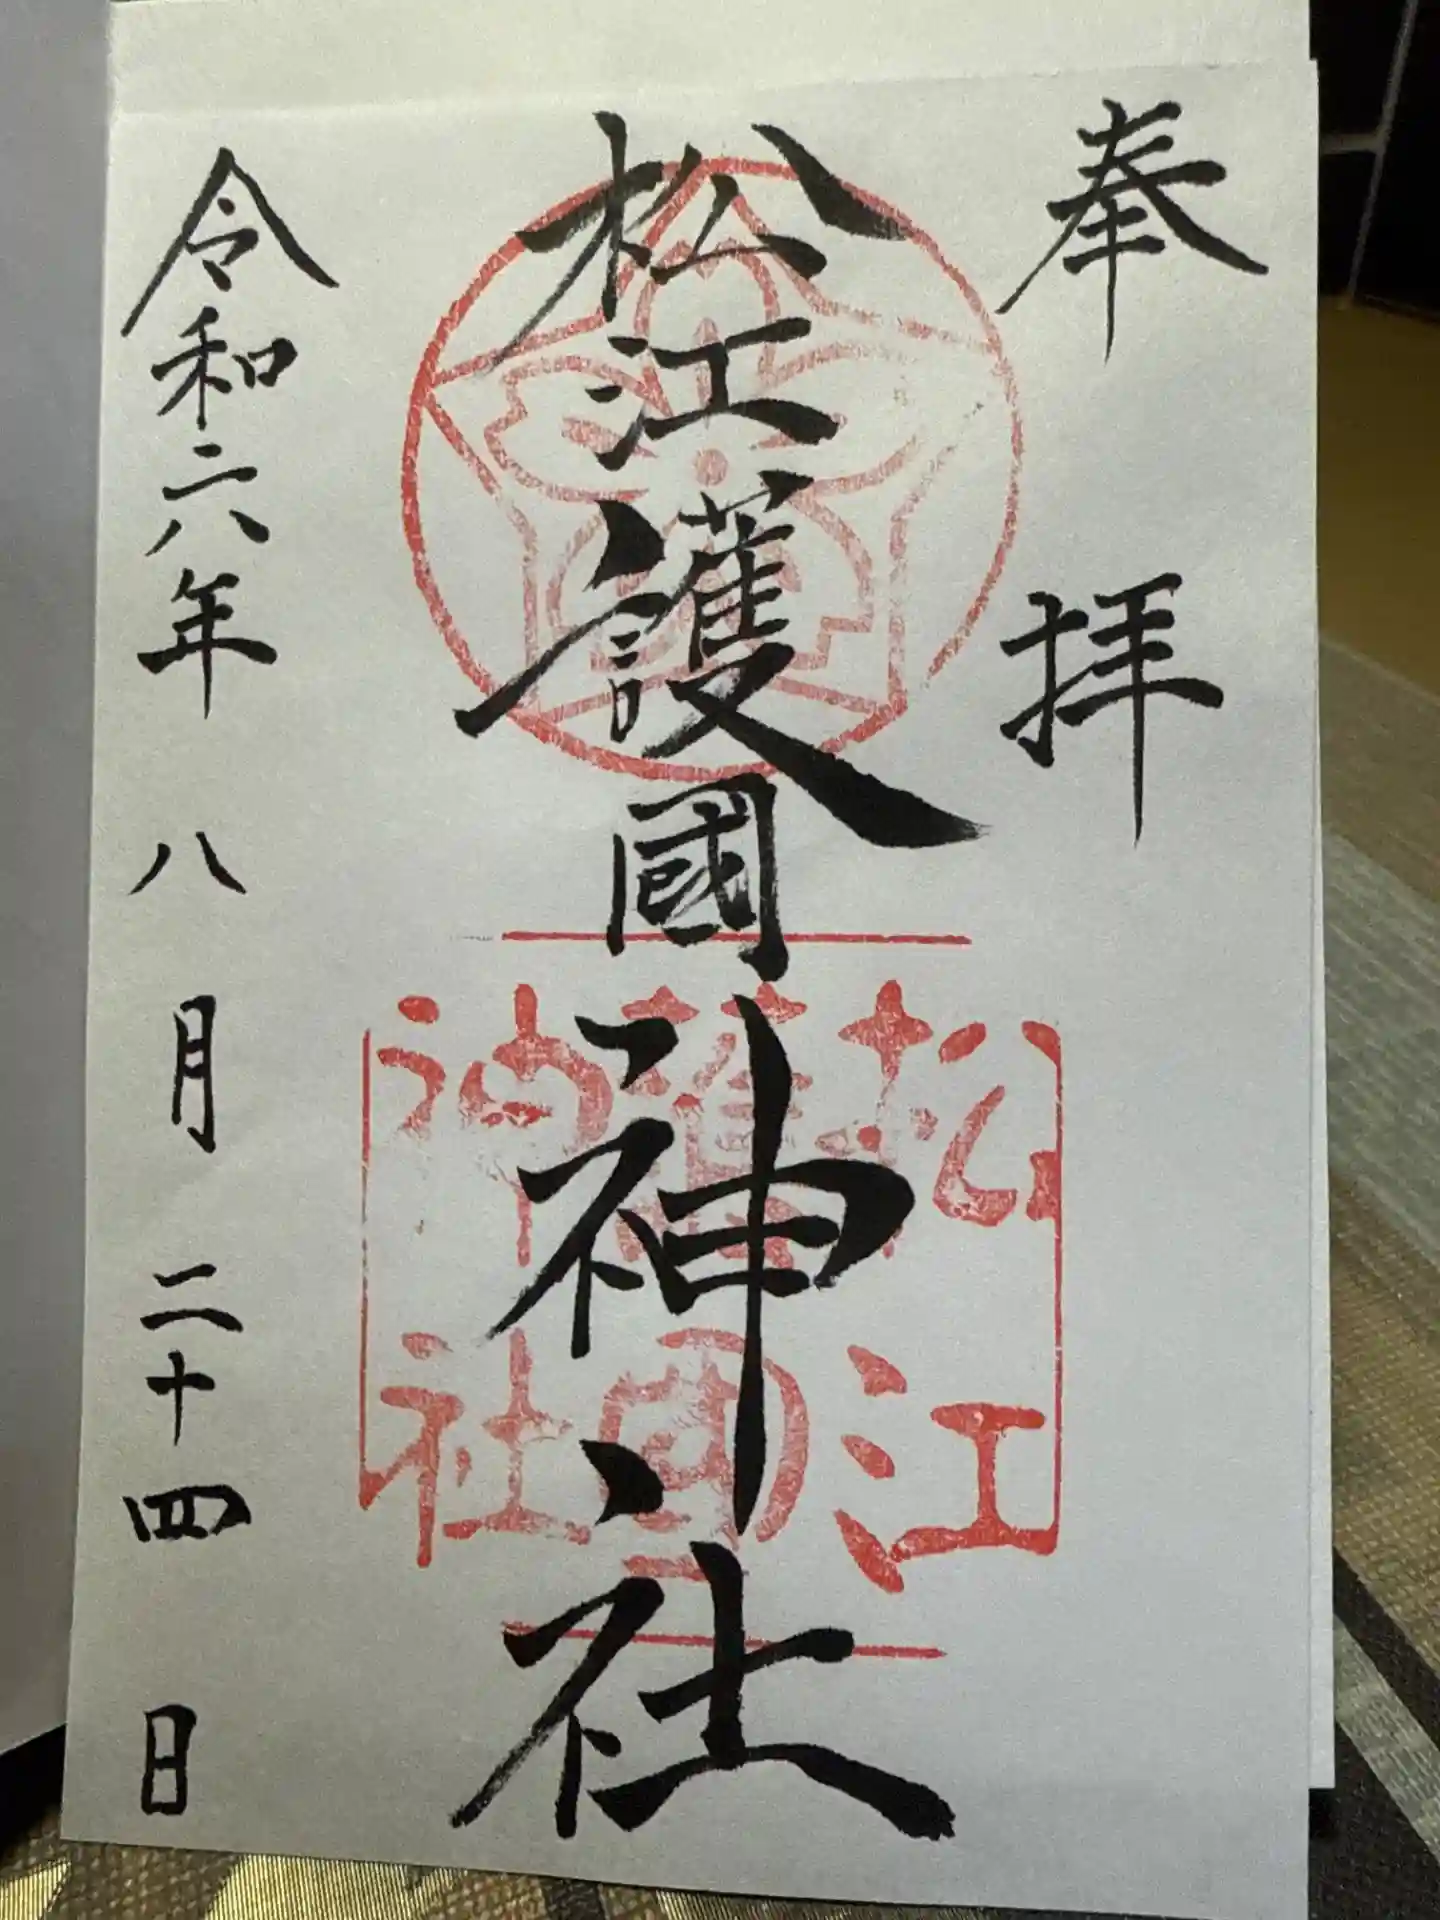 奉拝
松江護國神社
松江
護國
神社
令和六年八月二十四日